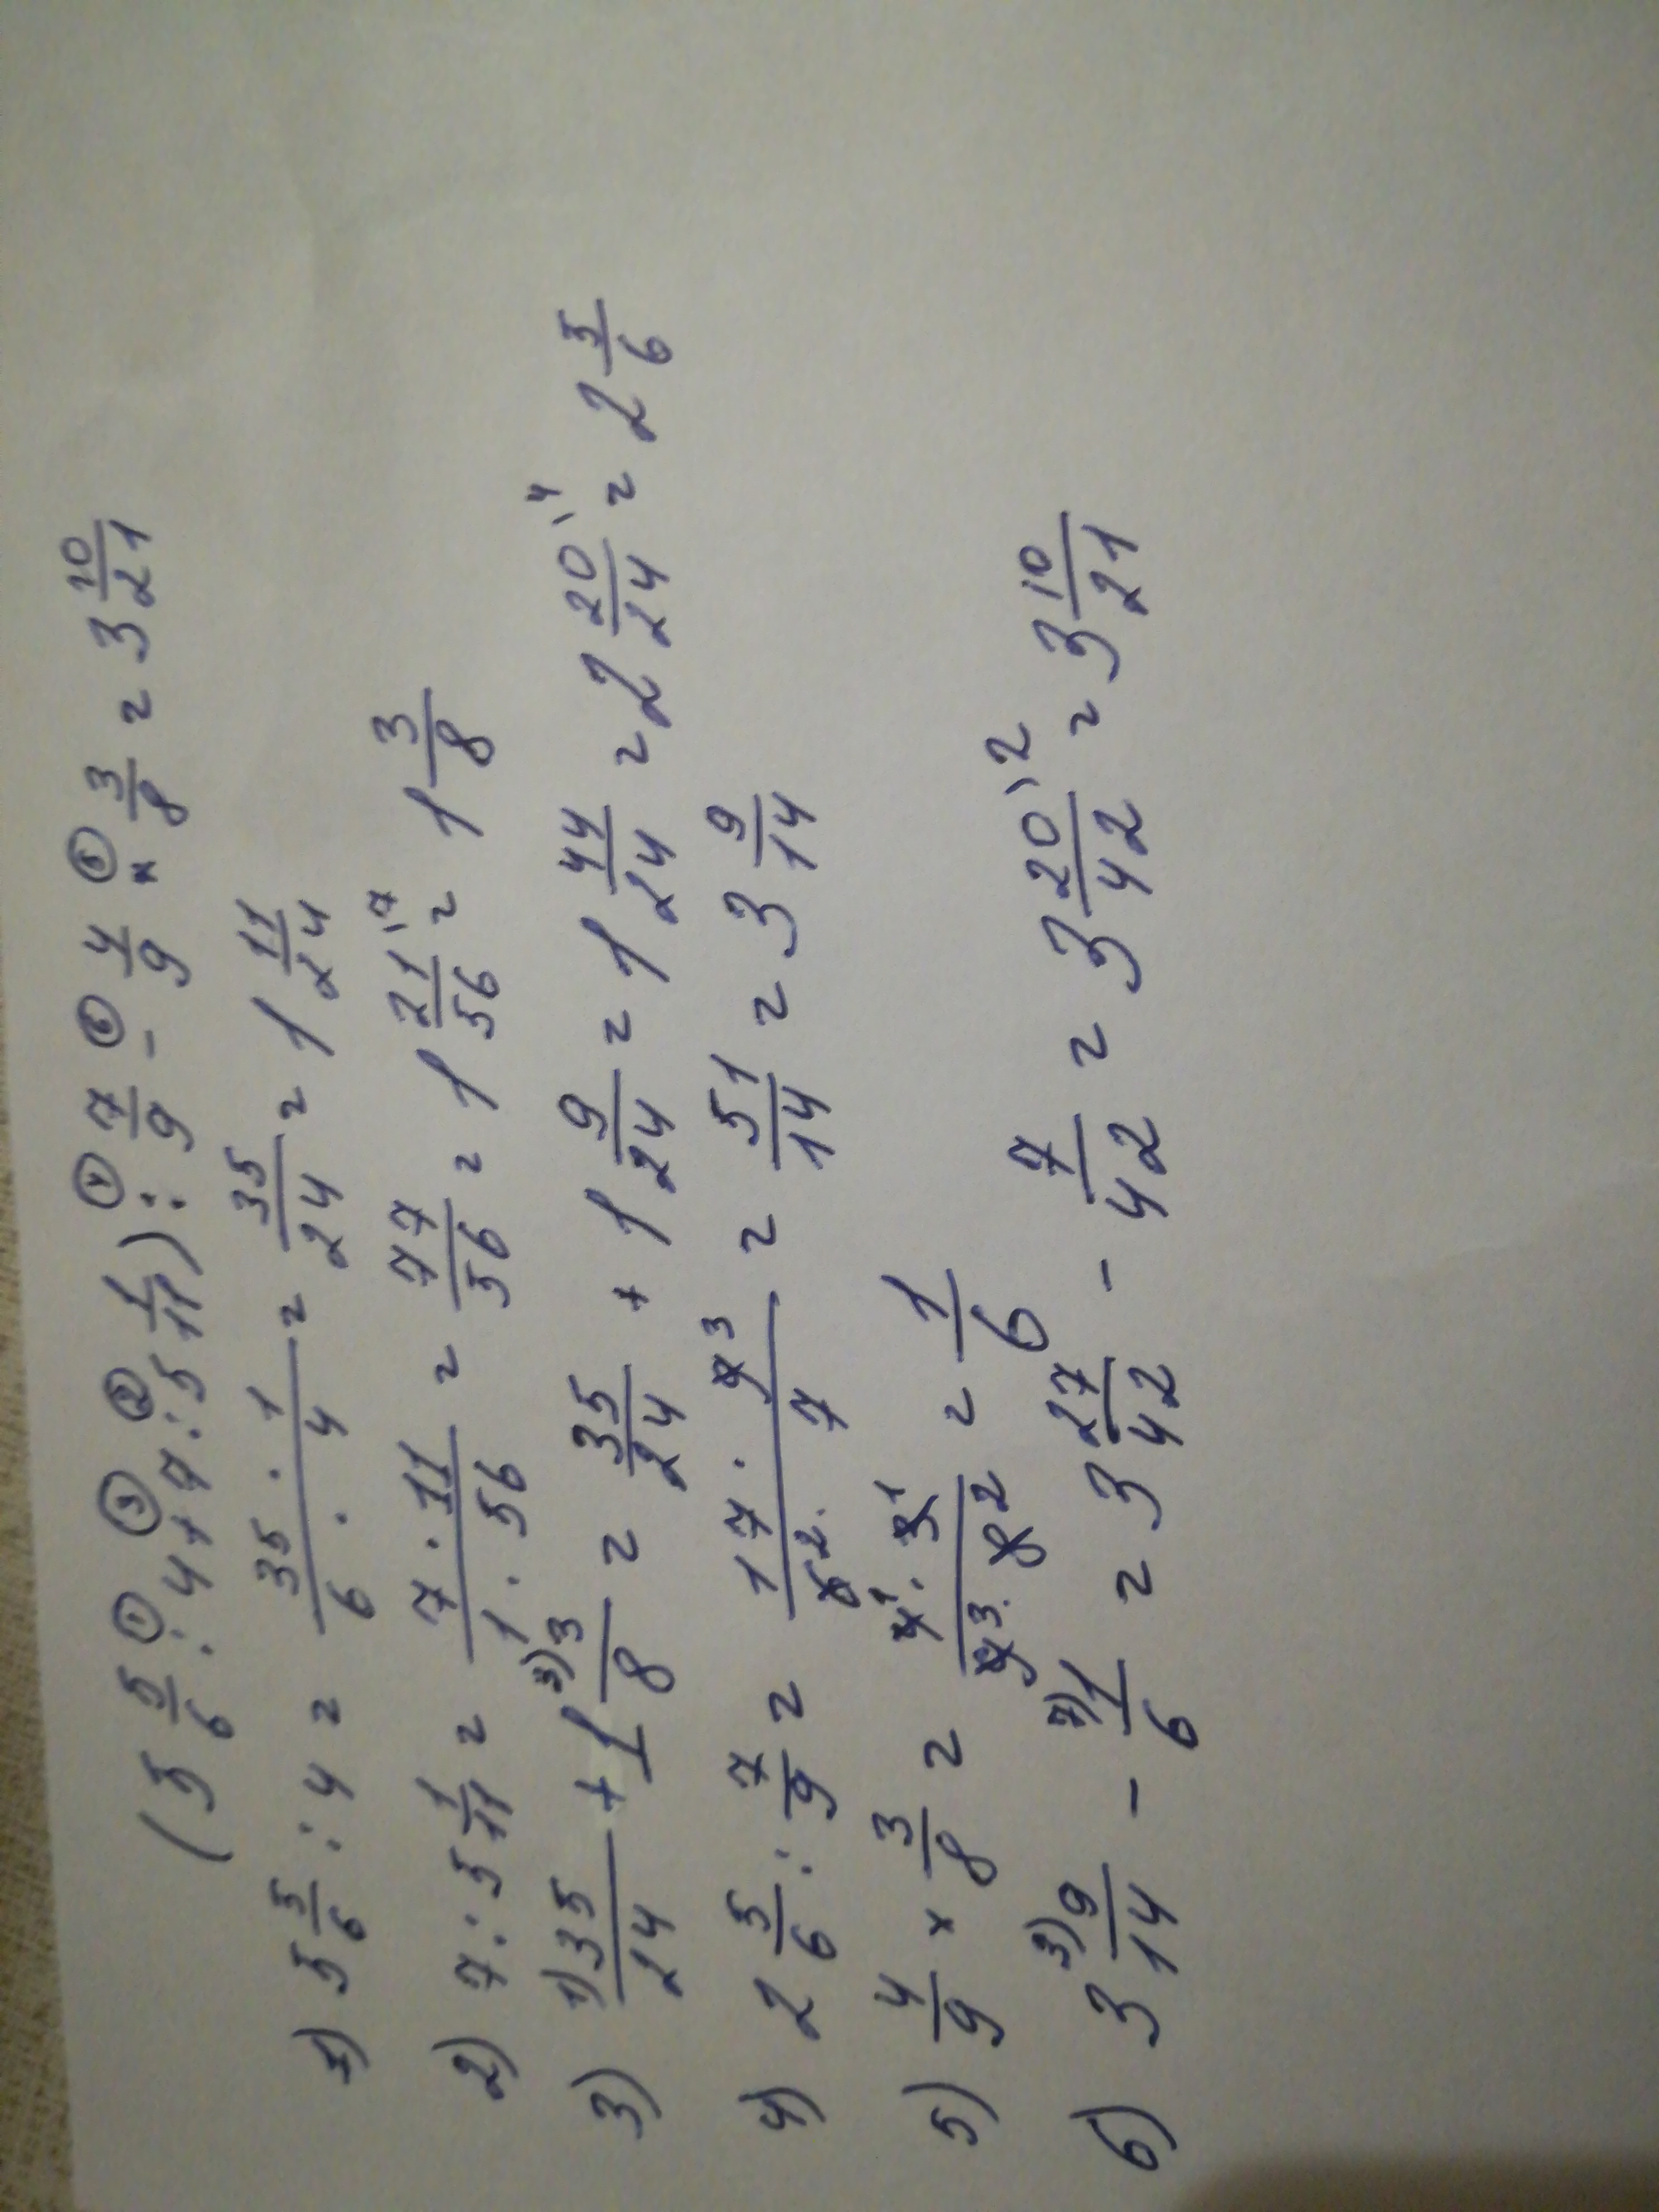 (5 5/6 : ① 4 + ③ 7 : ② 5 1/11) : ④ 7/9 - ⑥ 4/9 × ⑤ 3/8 = 3 10/21
1) 5 5/6 : 4 = 35 · 1 / 6 · 4 = 35/24 = 1 11/24
2) 7 : 5 1/11 = 7 · 11 / 1 · 56 = 77/56 = 1 21/56 \7 = 1 3/8
3) 1) 35/24 + 1 3) 3/8 = 35/24 + 1 9/24 = 1 44/24 = 2 20/24 \4 = 2 5/6
4) 2 5/6 : 7/9 = 17 · 9 3 / 6 2 · 7 = 51/14 = 3 9/14
5) 4/9 × 3/8 = 4 1 · 3 1 / 9 3 · 8 2 = 1/6
6) 3 3) 9/14 - 7) 1/6 = 3 27/42 - 7/42 = 3 20/42 \2 = 3 10/21